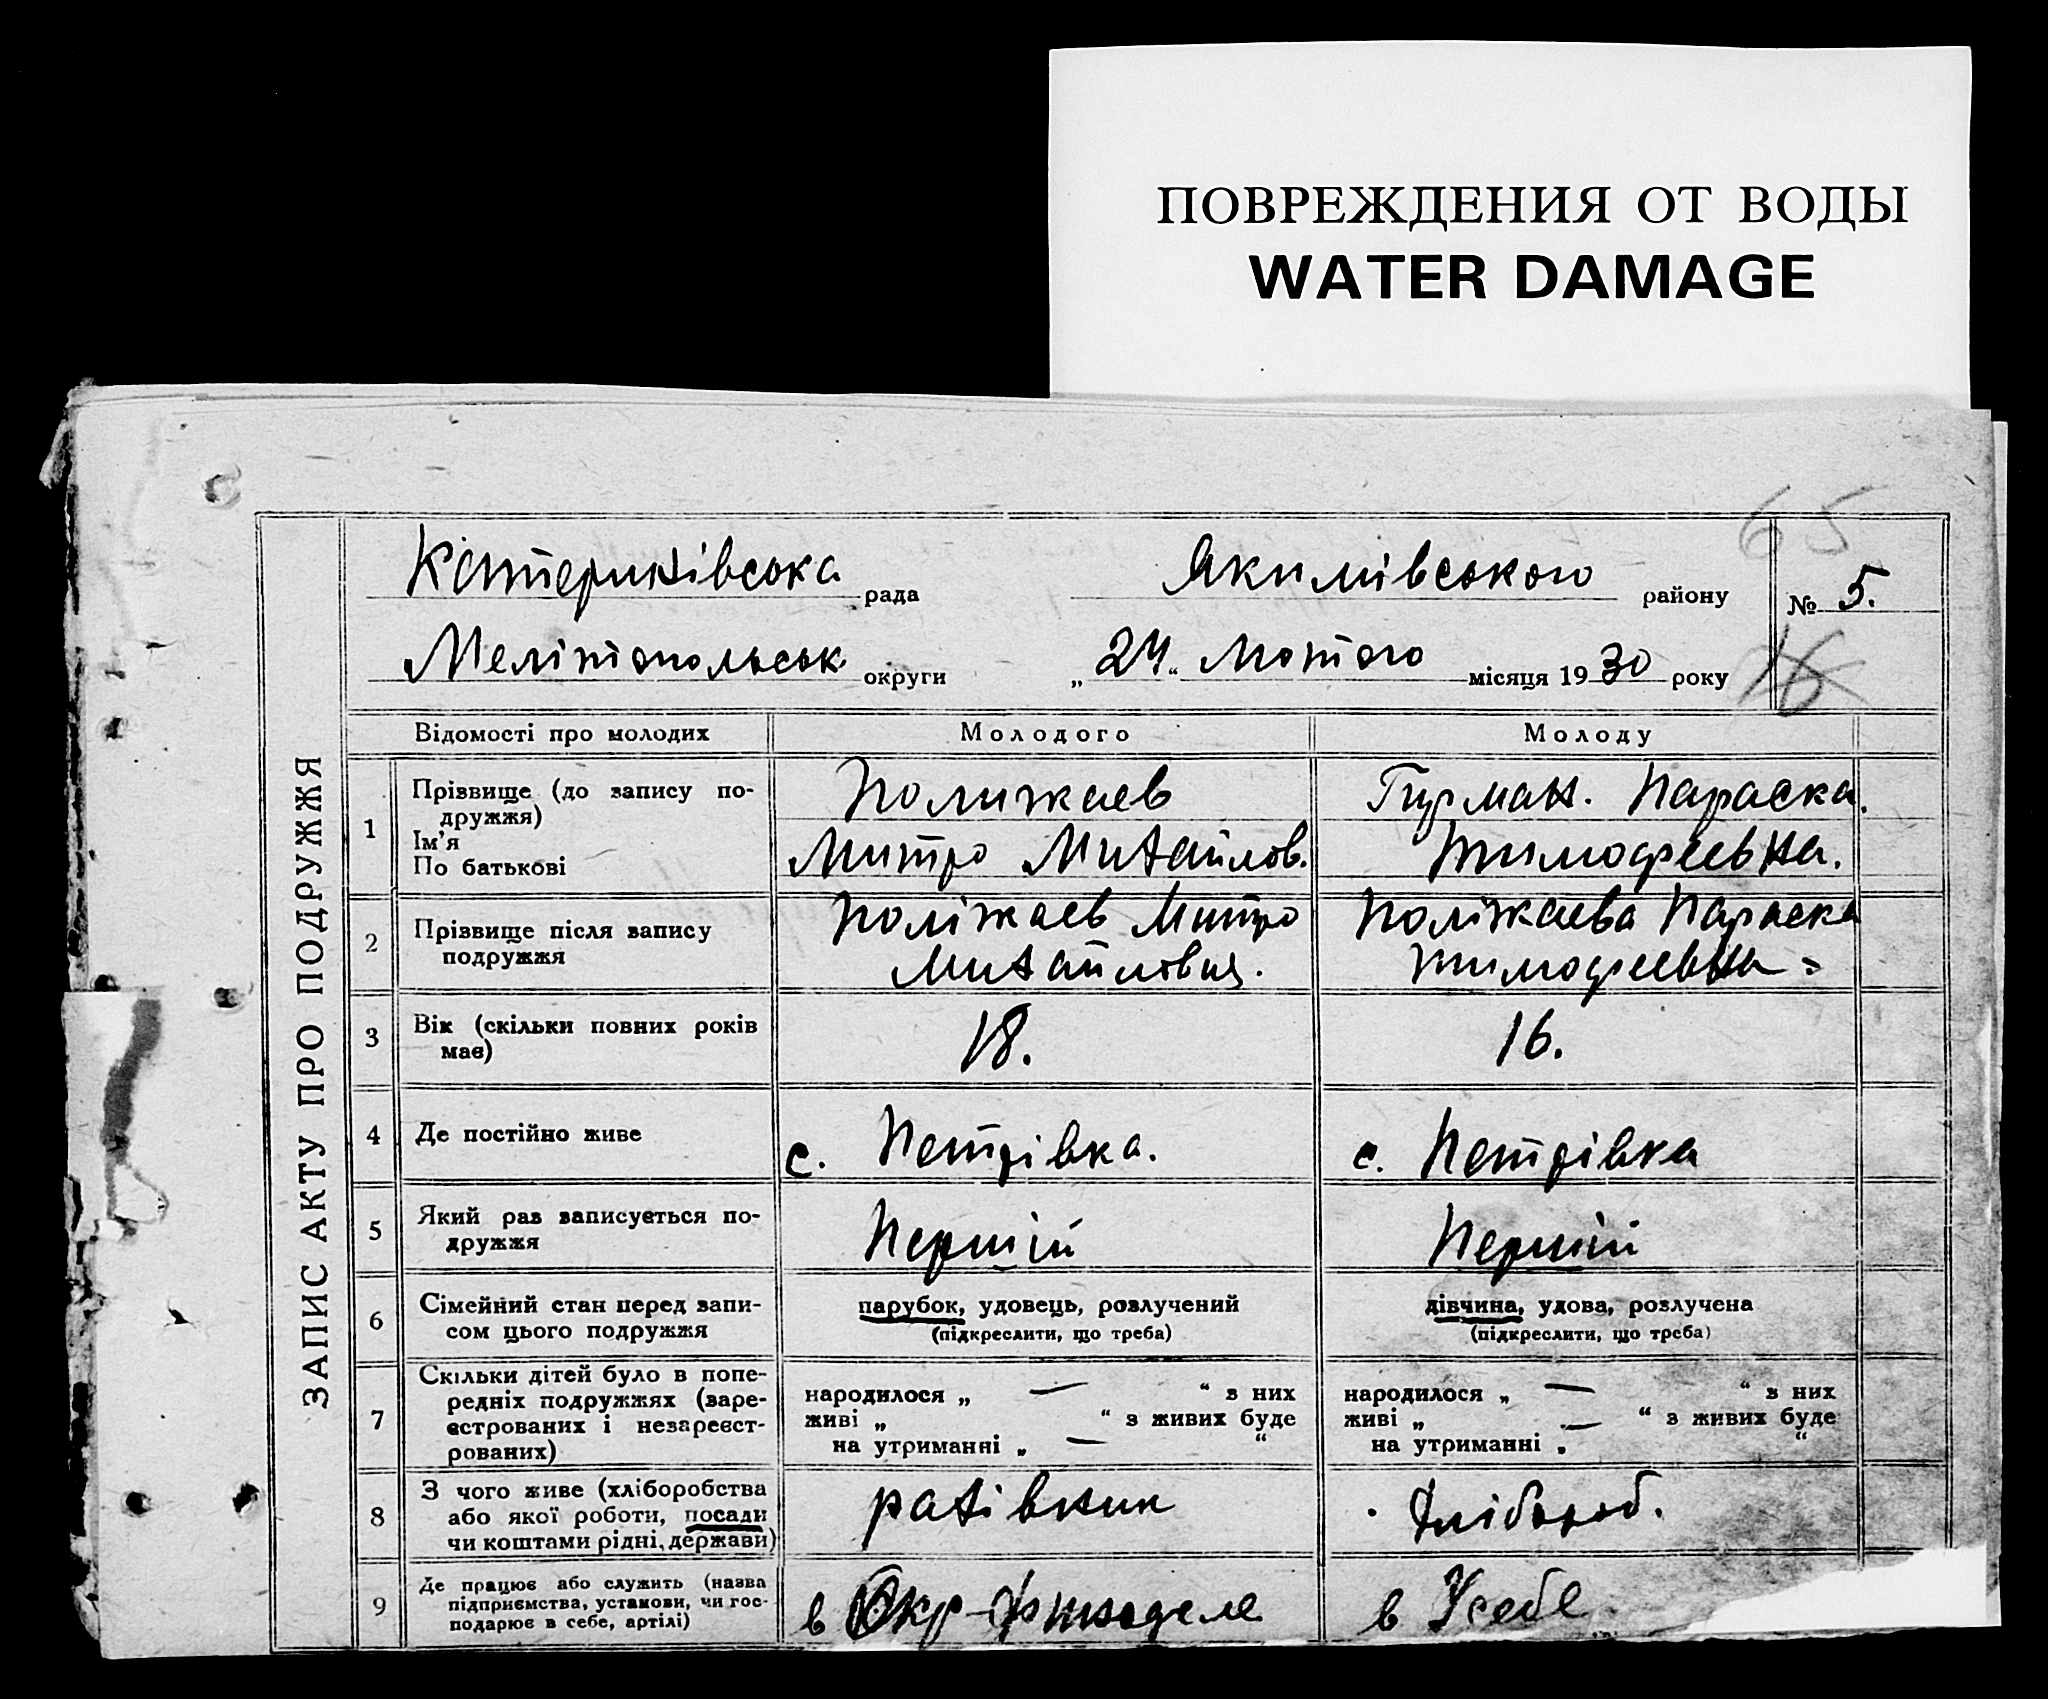 ПОВРЕЖДЕНИЯ ОТ ВОДЫ
WATER DAMAGE
65
ЗАПИС АКТУ ПРО ПОДРУЖЖЯ
Катеринівська рада Якимівського району № 5.
Мелітопольськ округи „24“ Лютого місяця 1930 року 16
Відомості про молодих Молодого Молоду
1 Прізвище (до запису по-
дружжя)
Ім'я
По батькові
Полижаев
Митро Михайлов.
Гурман. Параска.
Тимофеевна.
2 Прізвище після запису
подружжя
Поліжаев Митро
Михайлович.
Поліжаева Параска
Тимофеевна
3 Вік (скільки повних років
має)
18.
16.
4 Де постійно живе
с. Петрівка.
с. Петрівка
5 Який раз записується по-
дружжя
Перший
Перший
6 Сімейний стан перед запи-
сом цього подружжя
парубок, удовець, розлучений
(підкреслити, що треба)
дівчина, удова, розлучена
(підкреслити, що треба)
7 Скільки дітей було в попе-
редніх подружжях (заре-
єстрованих і незареєст-
рованих)
народилося „ — “ з них
живі „ “ з живих буде
на утриманні „ — “
народилося „ — “ з них
живі „ — “ з живих буде
на утриманні „ “
8 З чого живе (хліборобства
або якої роботи, посади
чи коштами рідні, держави)
рахівник
Хлібороб.
9 Де працює або служить (назва
підприємства, установи, чи гос-
подарює в себе, артілі)
в Окр-
в Усебе